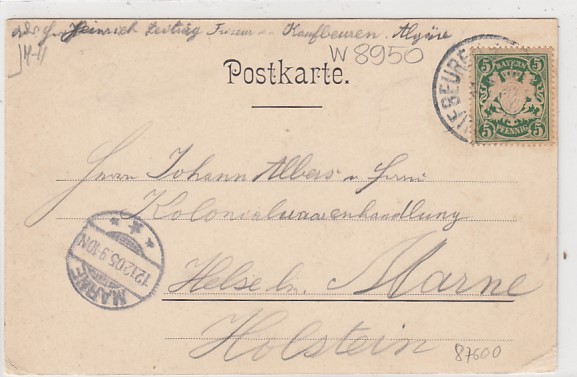 Heinrich Kaufbeuren. Algäu
W 8950
Postkarte.
BAYERN
5 5
5 5
PFENNIG
UFBEURE
Herrn Johann Albers u
Kolonialwaarenhandlung
Helse b. Marne
Holstein
MARNE
12.12.05.9-10N
87600